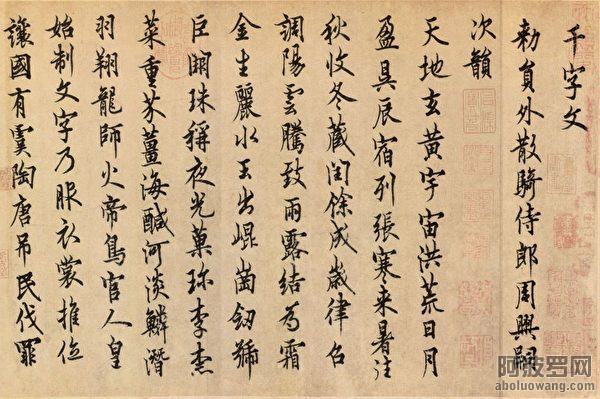 千字文
勅員外散騎侍郎周興嗣
次韻
天地玄黃宇宙洪荒日月
盈昃辰宿列張寒来暑往
秋收冬藏閏餘成歲律召
調陽雲騰致雨露結為霜
金生麗水玉出崐崗劒號
巨闕珠稱夜光菓珎李柰
菜重芥薑海鹹河淡鱗潛
羽翔龍師火帝鳥官人皇
始制文字乃服衣裳推位
讓國有虞陶唐吊民伐罪
阿波罗网
aboluowang.com